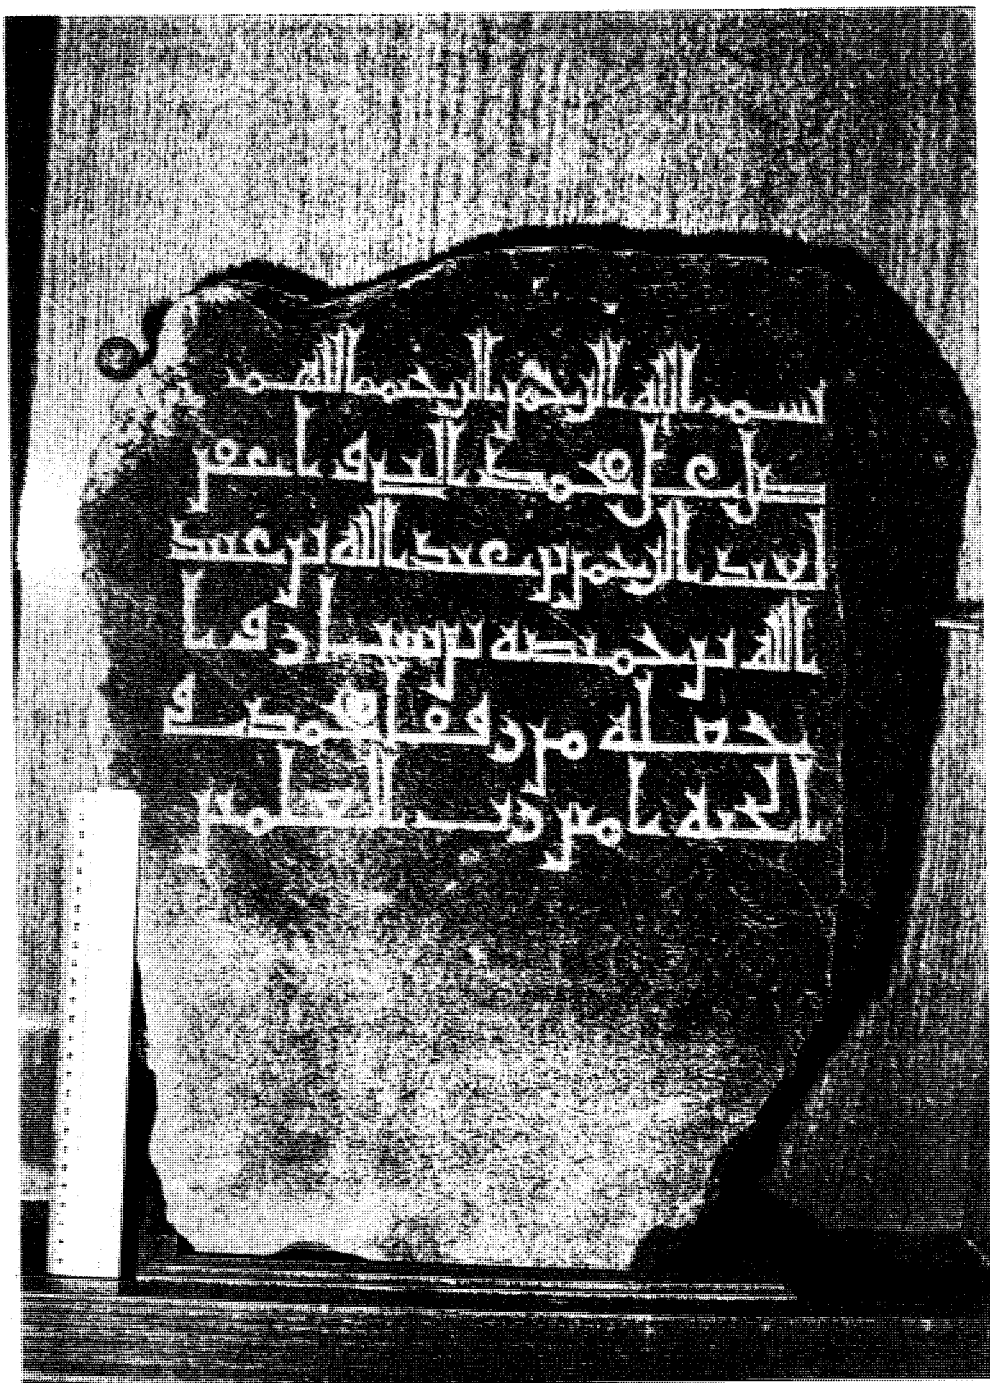 بسم الله الرحمن الرحيم اللهم
صل على محمد النبي و اغفر
لعبد الرحمن بن عبد الله بن عبيد
الله بن حميضة بن و ا
جعله من رفقا محمد في
الجنه امين رب العلمين